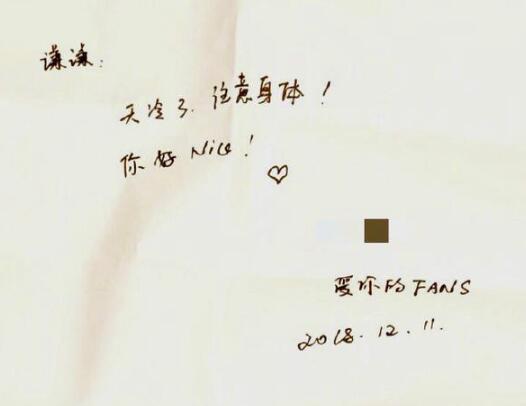 谦谦:
天冷了.注意身体!
你好Nice!
♡
爱你的FANS
2018.12.11.